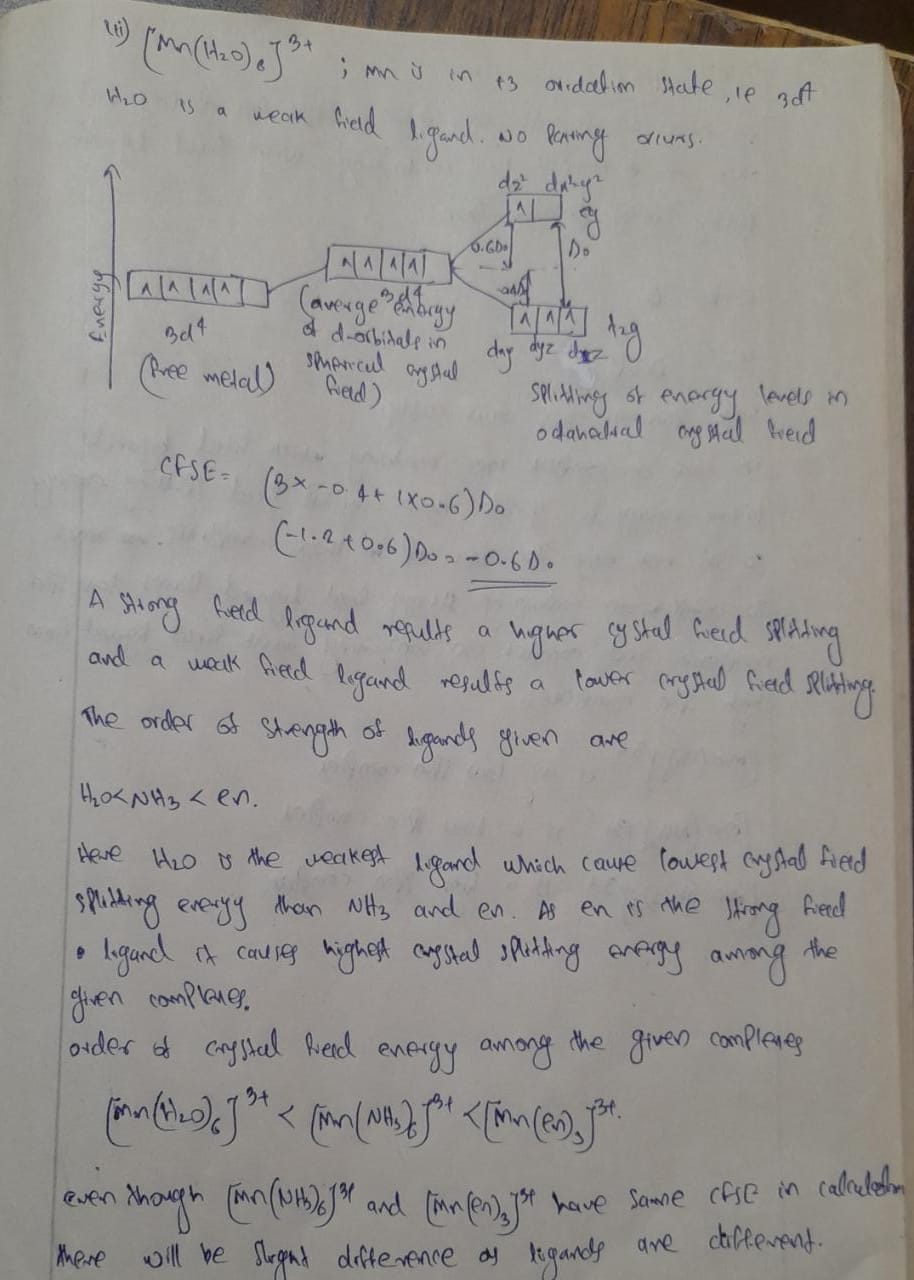 (ii) [Mn(H2O)6]3+ ; Mn is in +3 oxidation state, ie 3d4
H2O is a weak field ligand. NO Pairing occurs.
dz2 dx2-y2
eg
0.6Do
Do
Energy
3d4
3d4
(free metal)
(averge energy
of d-orbitals in
spherical crystal
field)
t2g
dxy dyz dxz
splitting of energy levels in
octahedral crystal field
CFSE= (3x-0.4+1x0.6)Do
(-1.2+0.6)Do = -0.6Do
A strong field ligand results a higher cystal field splitting
and a weak field ligand results a lower crystal field splitting.
The order of strength of ligands given are
H2O<NH3<en.
Here H2O is the weakest ligand which cause lowest crystal field
splitting energy than NH3 and en. As en is the strong field
ligand it causes highest crystal splitting energy among the
given complexes.
order of crystal field energy among the given complexes
[Mn(H2O)6]3+ < [Mn(NH3)6]3+ <[Mn(en)3]3+.
even though [Mn(NH3)6]3+ and [Mn(en)3]3+ have same CFSE in calculation
there will be slight difference as ligands are different.